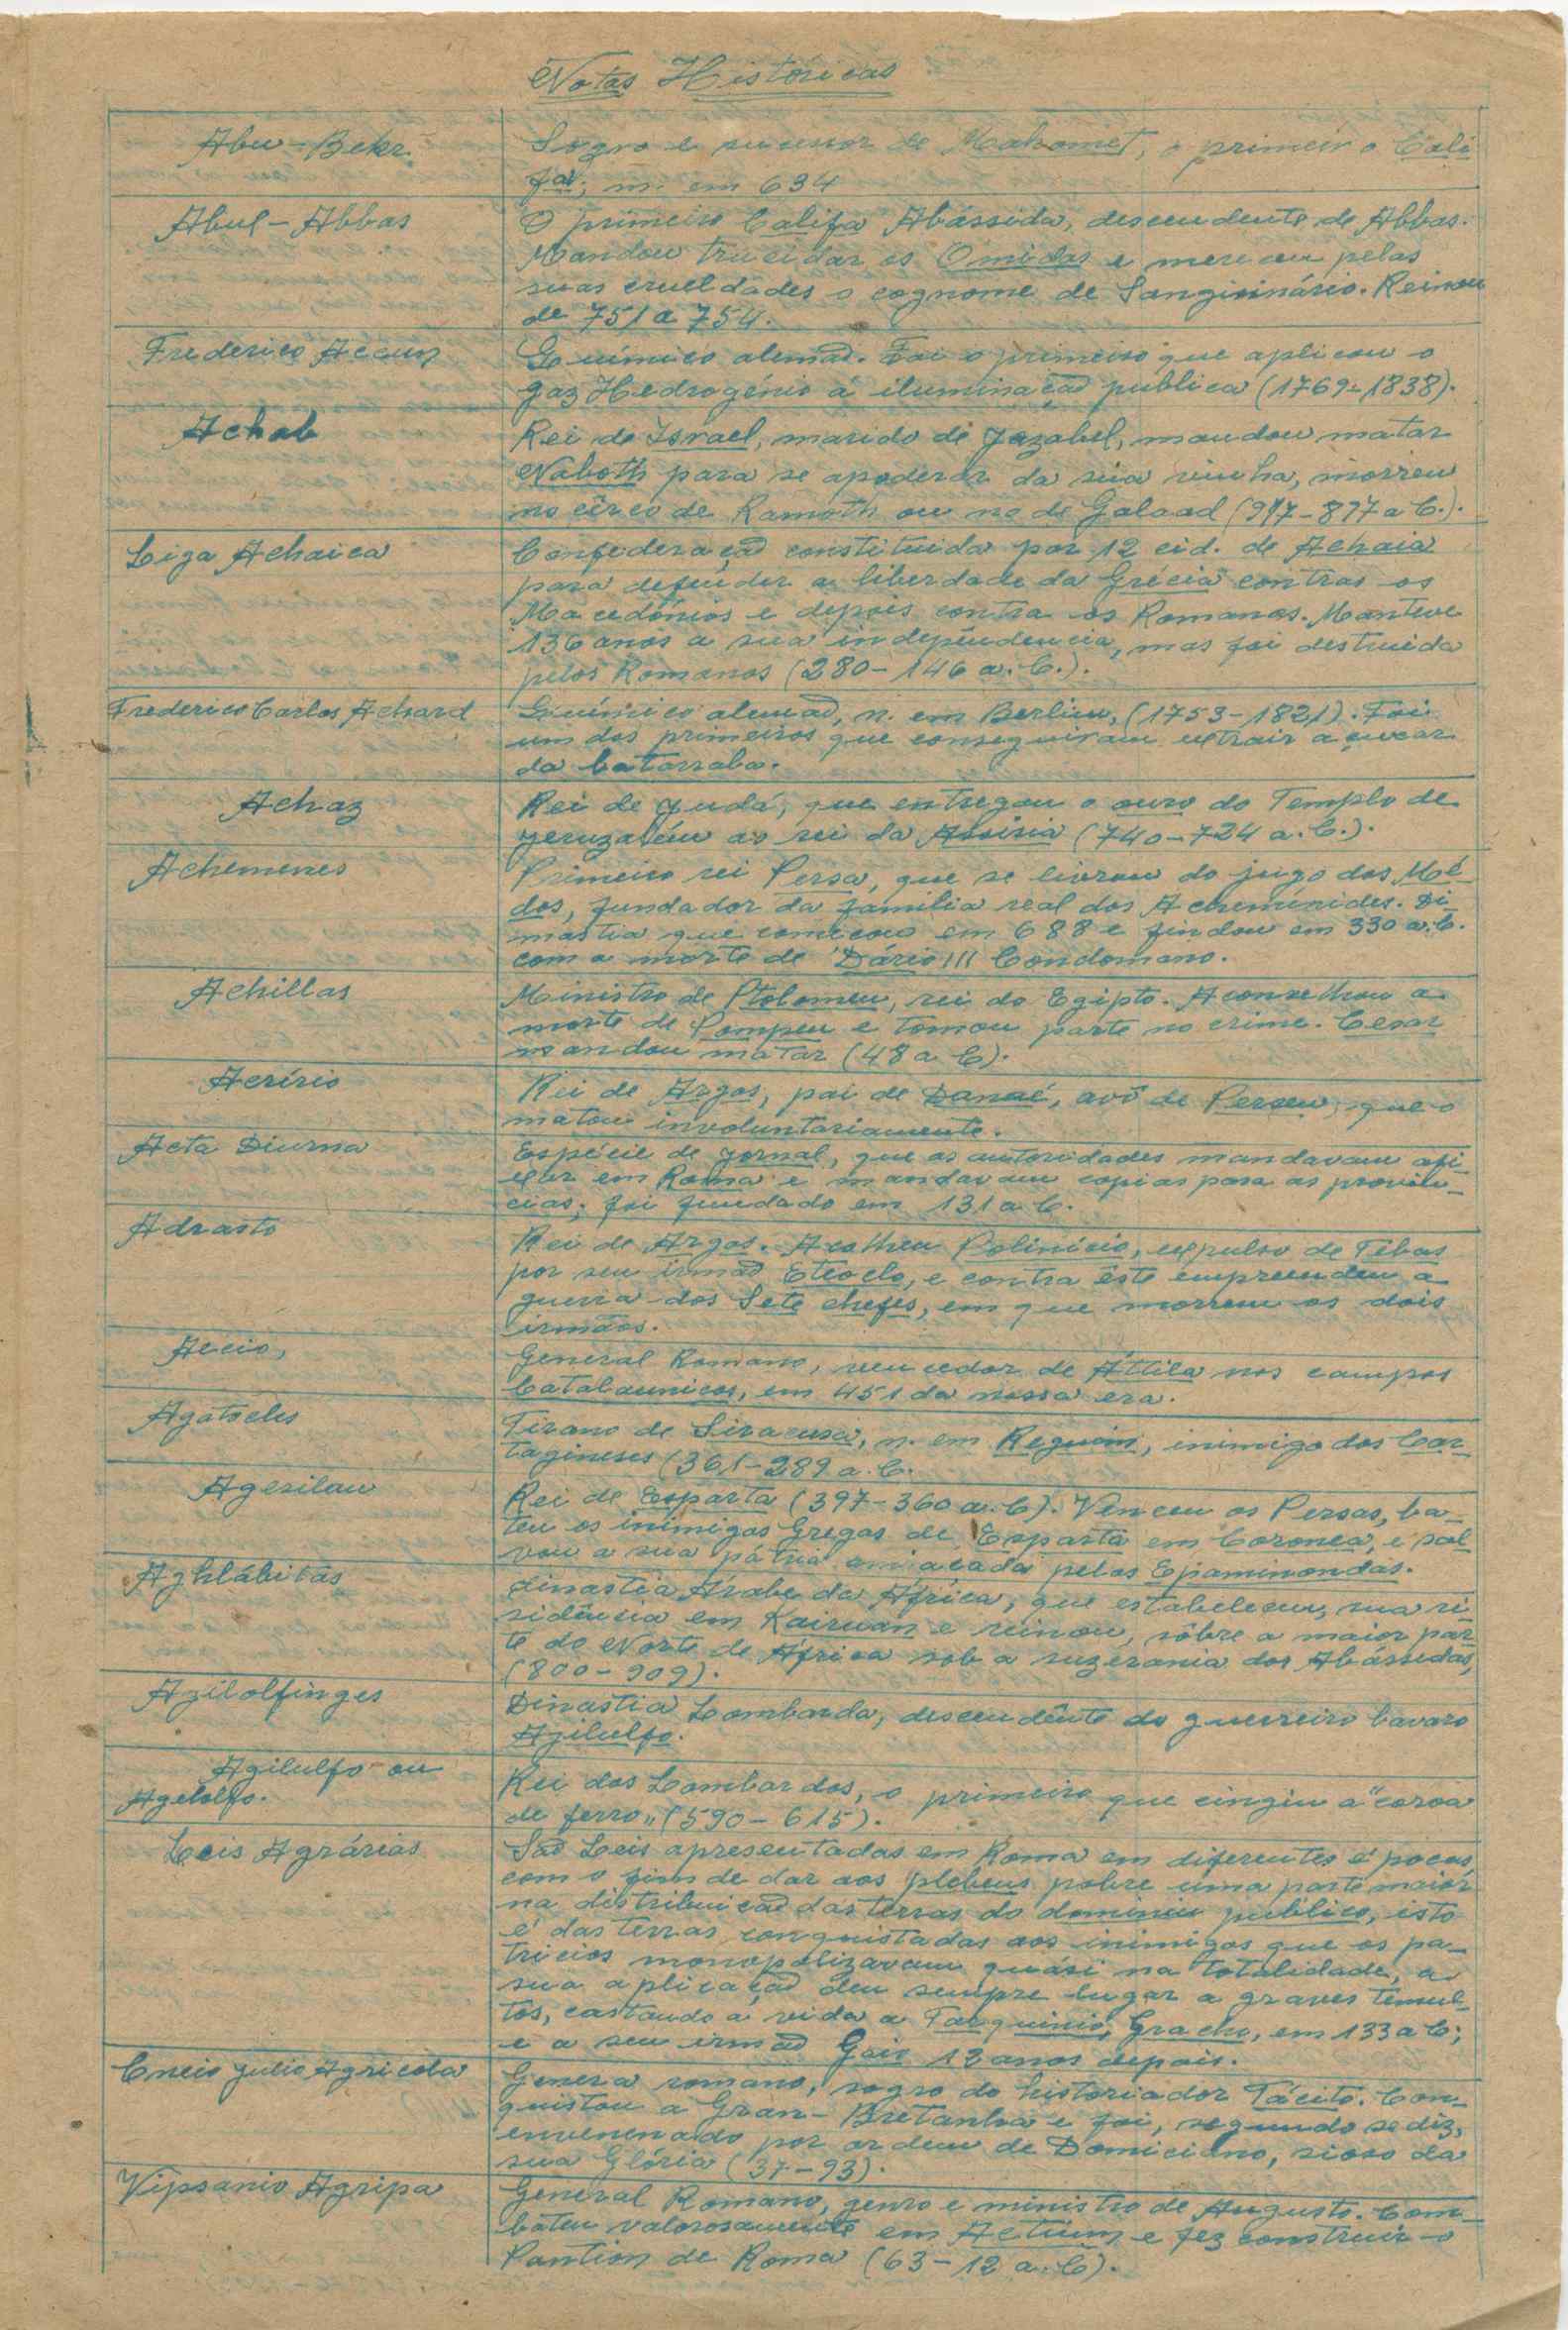 Notas Historicas
Abu-Bekr
Sogro e sucessor de Mahomet, o primeiro Cali
fa; m. em 634
Abul-Abbas
O primeiro Califa Abássida, descendente de Abbas.
Mandou trucidar os Omidas e mereceu pelas
suas crueldades o cognome de Sanginário. Reinou
de 751 a 754.
Frederico Accum
Químico alemão. Foi o primeiro que aplicou o
gaz Hedrogénio á iluminação publica (1769-1838).
Achab
Rei de Israel, marido de Jezabel, mandou matar
Naboth para se apoderar da sua vinha, morreu
no cêrco de Ramoth ou no de Galaad (917-897 a C.).
Liga Achaica
Confederação constituida por 12 cid. de Achaia
para defender a liberdade da Grécia contras os
Macedónios e depois contra os Romanos. Manteve
136 anos a sua independencia, mas foi destruida
pelos Romanos (280-146 a. C.).
Frederico Carlos Achard
Químico alemão, n. em Berlim, (1753-1821). Foi
um dos primeiros que conseguiram extrair açucar
da batarraba.
Achaz
Rei de Judá, que entregou o ouro do Templo de
Jeruzalém ao rei da Assiria (740-724 a. C.).
Achemenes
Primeiro rei Persa, que se livrou do jugo dos Mé-
dos, fundador da familia real dos Acheminides. Di
nastia que começou em 688 e findou em 330 a. C.
com a morte de Dário III Condomano.
Achillas
Ministro de Ptolomeu, rei do Egipto. Aconselhou a
morte de Pompeu e tomou parte no crime. Cesar
mandou matar (48 a C).
Acrírio
Rei de Argos, pai de Danaé, avô de Perseu, que o
matou involuntariamente.
Acta Diurna
Espécie de jornal, que as autoridades mandavam afi-
xar em Roma e mandavam copias para as provin-
cias; foi fundado em 131 a C.
Adrasto
Rei de Argos. Acolheu Polinicio, expulso de Tébas
por seu irmão Eteoclo, e contra êste empreendeu a
guerra dos Sete chefes, em que morreu os dois
irmãos.
Aecio,
General Romano, vencedor de Áttila nos campos
Catalaunicos, em 451 da nossa era.
Agatocles
Tirano de Siracusa, n. em Reguim, inimigo dos Car-
tagineses (361-289 a. C.
Agesilau
Rei de Esparta (397-360 a. C). Venceu os Persas, ba-
teu os inimigos Gregos de Esparta em Coronea, e sal
vou a sua pátria amiaçada pelos Epaminondas.
Aghlábitas
dinastia Árabe da África, que estabeleceu, sua ri
sidência em Kairuan e reinou, sôbre a maior par
te do Norte de África sob a suzerania dos Abássidas,
(800-909).
Agilolfinges
Dinastia Lombarda, descendênte do guerreiro bavaro
Agilulfo.
Agilulfo ou
Agelolfo.
Rei dos Lombardos, o primeiro que cingiu a "coroa
de ferro" (590-615).
Leis Agrárias
São Leis apresentadas em Roma em diferentes épocas,
com o fim de dar aos plebeus pobre uma parte maior
na distribuicão das terras do dominiu publico, isto
é das terras conquistadas aos inimigos que os pa-
tricios monopolizavam quási na totalidade, a
sua aplicação deu sempre lugar a graves tumul-
tos, custando a vida a Tarquinio, Gracho, em 133 a C;
e a seu irmão Gaio 12 anos depois.
Cneio Julio Agricola
Genera romano, sogro do historiador Tácito. Con-
quistou a Gran-Bretanha e foi, segundo se diz,
envenenado por ordem de Domiciano, sioso da
sua Glória (37-93).
Vipsanio Agripa
General Romano, genro e ministro de Augusto. Com-
bateu valorosamente em Actium e fez construir o
Pantion de Roma (63-12 a. C).